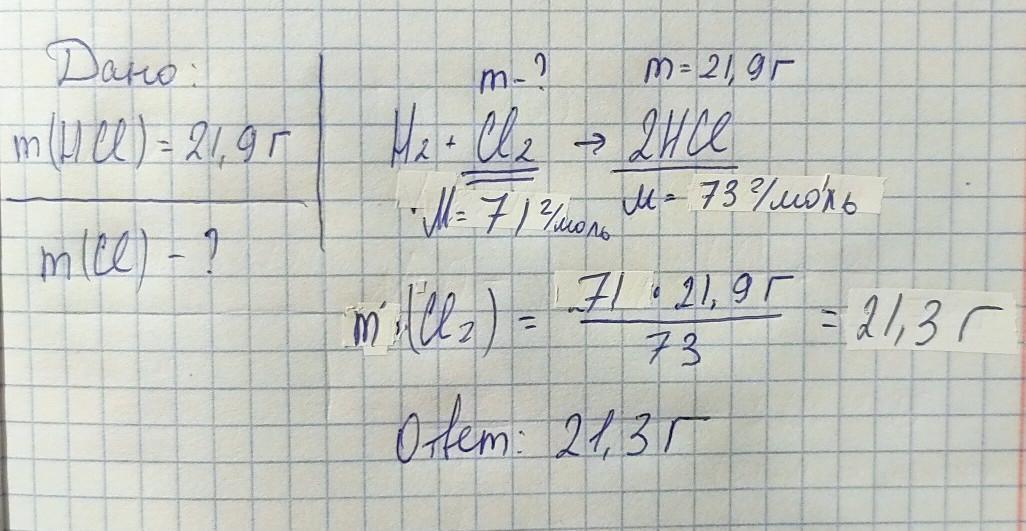 Дано:
m(HCl) = 21,9 г
m(Cl) - ?
m - ? m = 21,9 г
H₂ + Cl₂ → 2HCl
M = 71 г/моль M = 73 г/моль
m (Cl₂) = 71 · 21,9 г / 73 = 21,3 г
Ответ: 21,3 г